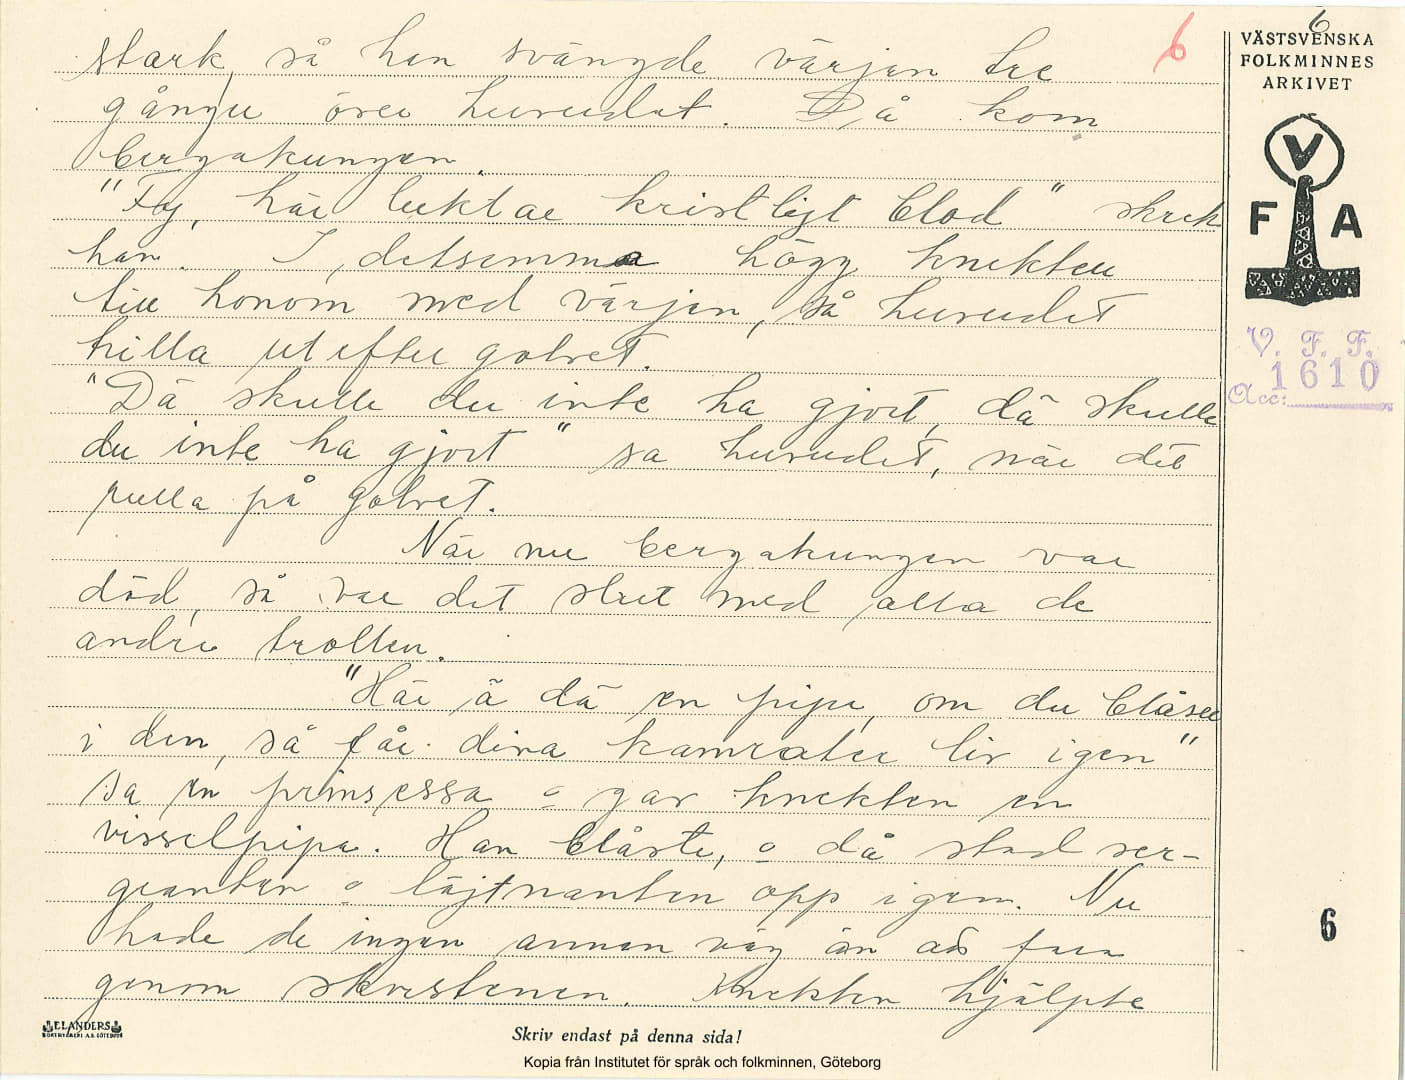 6
6
VÄSTSVENSKA
FOLKMINNES
ARKIVET
V
F A
V. F. F.
1610
Acc:
stark, så han svängde värjan tre
gånger över huvudet. Då kom
bergakungen.
"Fy, här luktar kristligt blod" skrek
han. I detsamma högg knekten
till honom med värjan, så huvudet
trilla ut efter golvet.
"Dä skulle du inte ha gjort, dä skulle
du inte ha gjort" sa huvudet, när det
rulla på golvet.
När nu bergakungen var
död, så var det slut med alla de
andra trollen.
"Här ä dä en pipa, om du blåser
i den, så får dina kamrater liv igen"
sa en prinsessa o gav knekten en
visselpipa. Han blåste, o då stod ser-
geanten o löjtnanten opp igen. Nu
hade de ingen annan väg än att fara
genom skorstenen. Knekten hjälpte
6
ELANDERS
BOKTRYCKERI A.B. GÖTEBORG
Skriv endast på denna sida!
Kopia från Institutet för språk och folkminnen, Göteborg